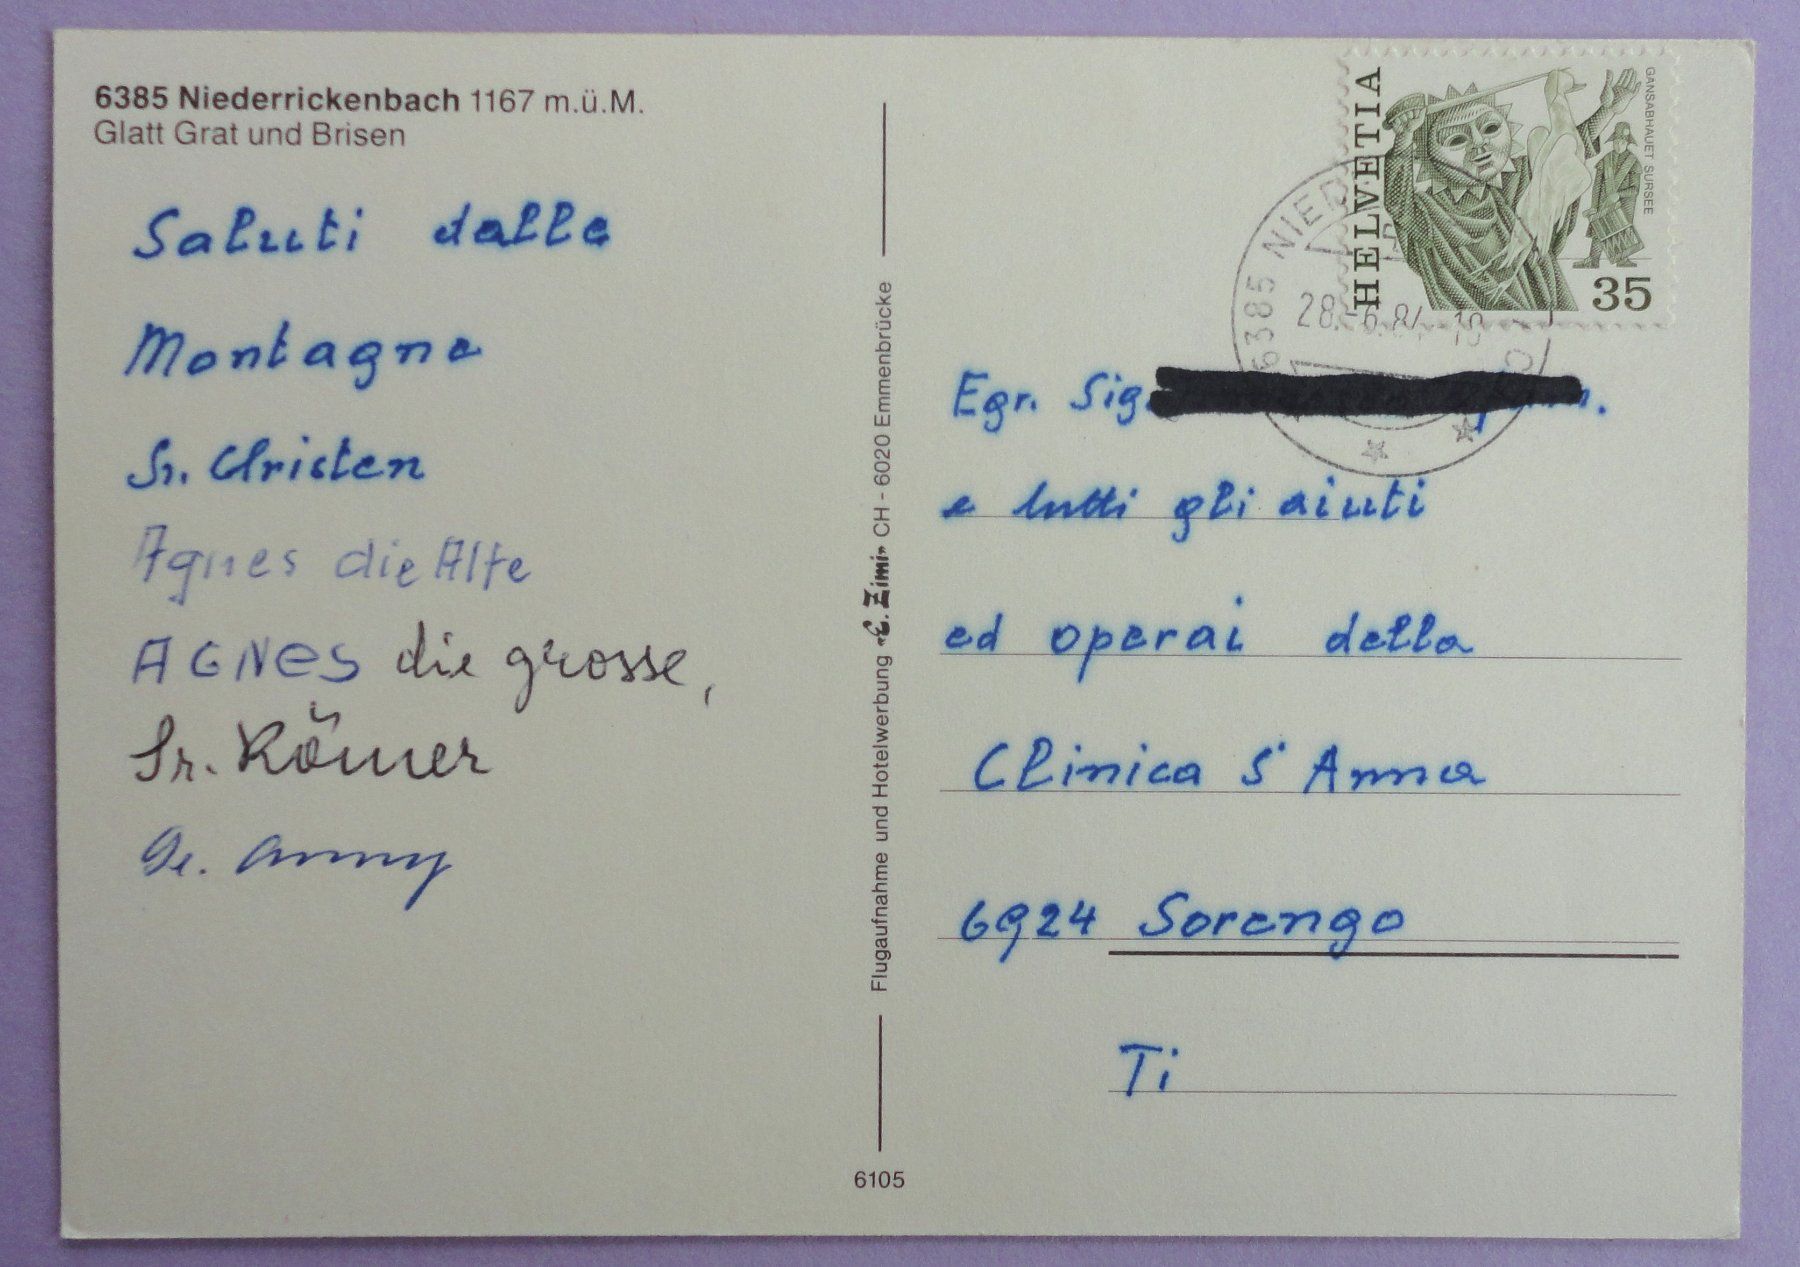 6385 Niederrickenbach 1167 m.ü.M.
Glatt Grat und Brisen
Saluti dalle
Montagne
Sr. Christen
Agnes die Alte
AGNES die grosse,
Sr. Römer
Sr. Anny
Flugaufnahme und Hotelwerbung «E. Zimi» CH - 6020 Emmenbrücke
6105
HELVETIA
GANSABHAUET SURSEE
35
6385 NIED
28.-6.84
Egr. Sig.
e tutti gli aiuti
ed operai della
Clinica S' Anna
6924 Sorengo
Ti